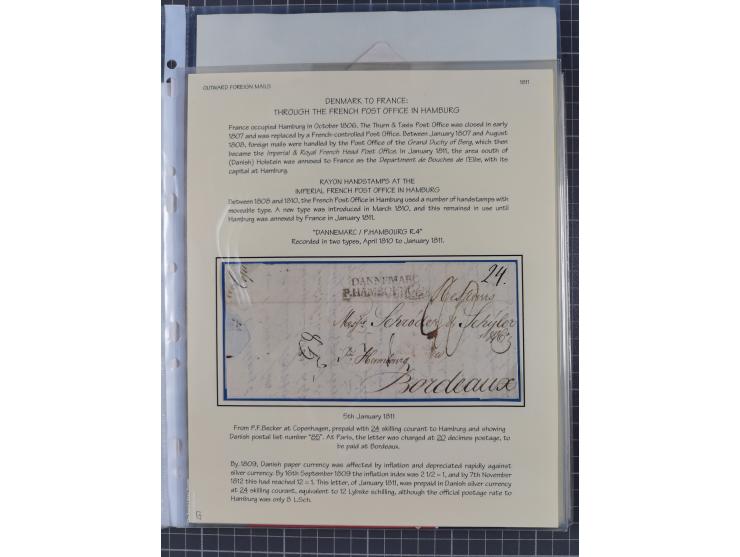 OUTWARD FOREIGN MAILS
1811
DENMARK TO FRANCE:
THROUGH THE FRENCH POST OFFICE IN HAMBURG
France occupied Hamburg in October 1806. The Thurn & Taxis Post Office was closed in early
1807 and was replaced by a French-controlled Post Office. Between January 1807 and August
1808, foreign mails were handled by the Post Office of the Grand Duchy of Berg, which then
became the Imperial & Royal French Head Post Office. In January 1811, the area south of
(Danish) Holstein was annexed to France as the Department de Bouches de l'Elbe, with its
capital at Hamburg.
RAYON HANDSTAMPS AT THE
IMPERIAL FRENCH POST OFFICE IN HAMBURG
Between 1808 and 1810, the French Post Office in Hamburg used a number of handstamps with
moveable type. A new type was introduced in March 1810, and this remained in use until
Hamburg was annexed by France in January 1811.
"DANNEMARC / P.HAMBOURG R.4"
Recorded in two types, April 1810 to January 1811.
24.
DANNEMARC
P.HAMBOURG
Messrs Schroder & Schyler
Hambourg
Bordeaux
5th January 1811
From P.F.Becker at Copenhagen, prepaid with 24 skilling courant to Hamburg and showing
Danish postal list number "85". At Paris, the letter was charged at 20 decimes postage, to
be paid at Bordeaux.
By 1809, Danish paper currency was affected by inflation and depreciated rapidly against
silver currency. By 16th September 1809 the inflation index was 2 1/2 = 1, and by 7th November
1812 this had reached 12 = 1. This letter, of January 1811, was prepaid in Danish silver currency
at 24 skilling courant, equivalent to 12 Lybske schilling, although the official postage rate to
Hamburg was only 8 L.Sch.